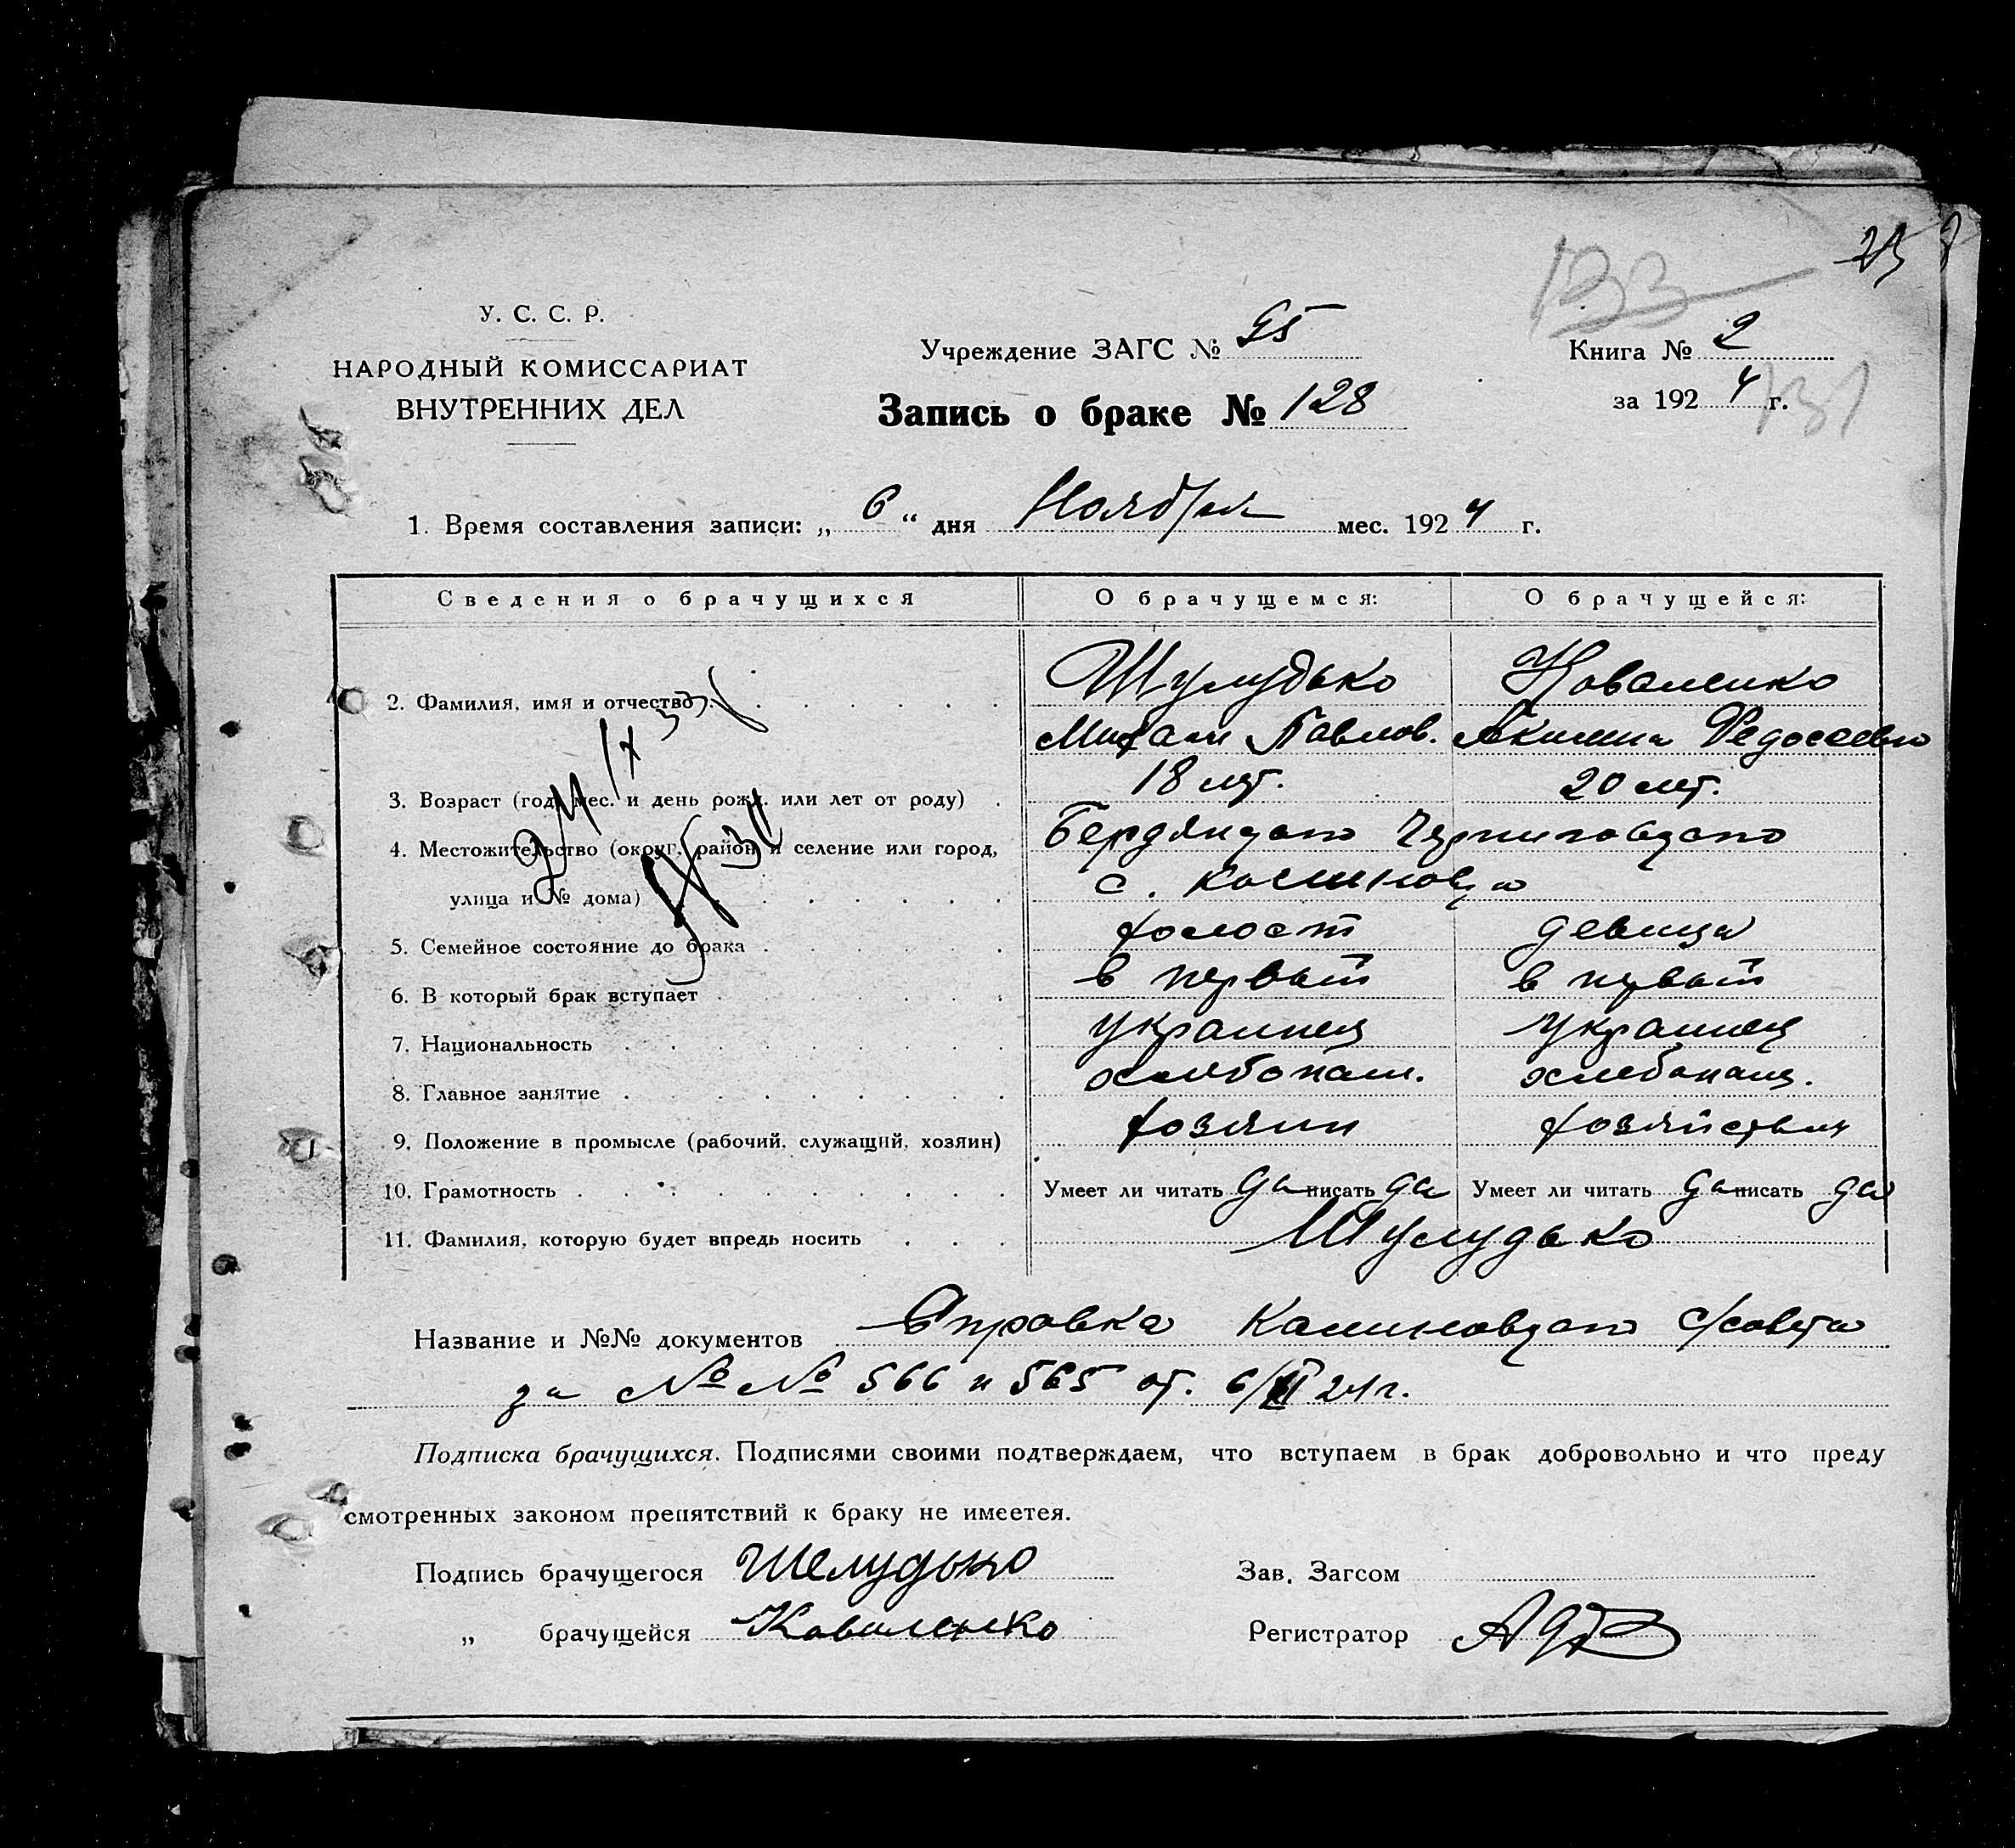 133
У. С. С. Р.
НАРОДНЫЙ КОМИССАРИАТ
ВНУТРЕННИХ ДЕЛ
Учреждение ЗАГС №
Книга № 2
Запись о браке № 128
за 1924 г.
131
1. Время составления записи: „ 6 “ дня Ноября мес. 1924 г.
Сведения о брачущихся О брачущемся: О брачущейся:
2. Фамилия, имя и отчество Шулудько Коваленко
Михаил Павлов. Акилина Федосеевна
3. Возраст (год, мес. и день рожд. или лет от роду) 18 лет. 20 лет.
4. Местожительство (округ, район и селение или город, Бердянского Черниговского
улица и № дома) с.
5. Семейное состояние до брака холост девица
6. В который брак вступает в первый в первый
7. Национальность украинец украинец
8. Главное занятие хлебопаш. хлебопаш.
9. Положение в промысле (рабочий, служащий, хозяин) хозяин
10. Грамотность Умеет ли читать да писать да Умеет ли читать да писать да
11. Фамилия, которую будет впредь носить Шулудько
Название и №№ документов Справка с/совета
за №№ 566 и 565 от. 6/XI 24 г.
Подписка брачущихся. Подписями своими подтверждаем, что вступаем в брак добровольно и что преду
смотренных законом препятствий к браку не имеетея.
Подпись брачущегося Шелудько Зав. Загсом
„ брачущейся Коваленко Регистратор